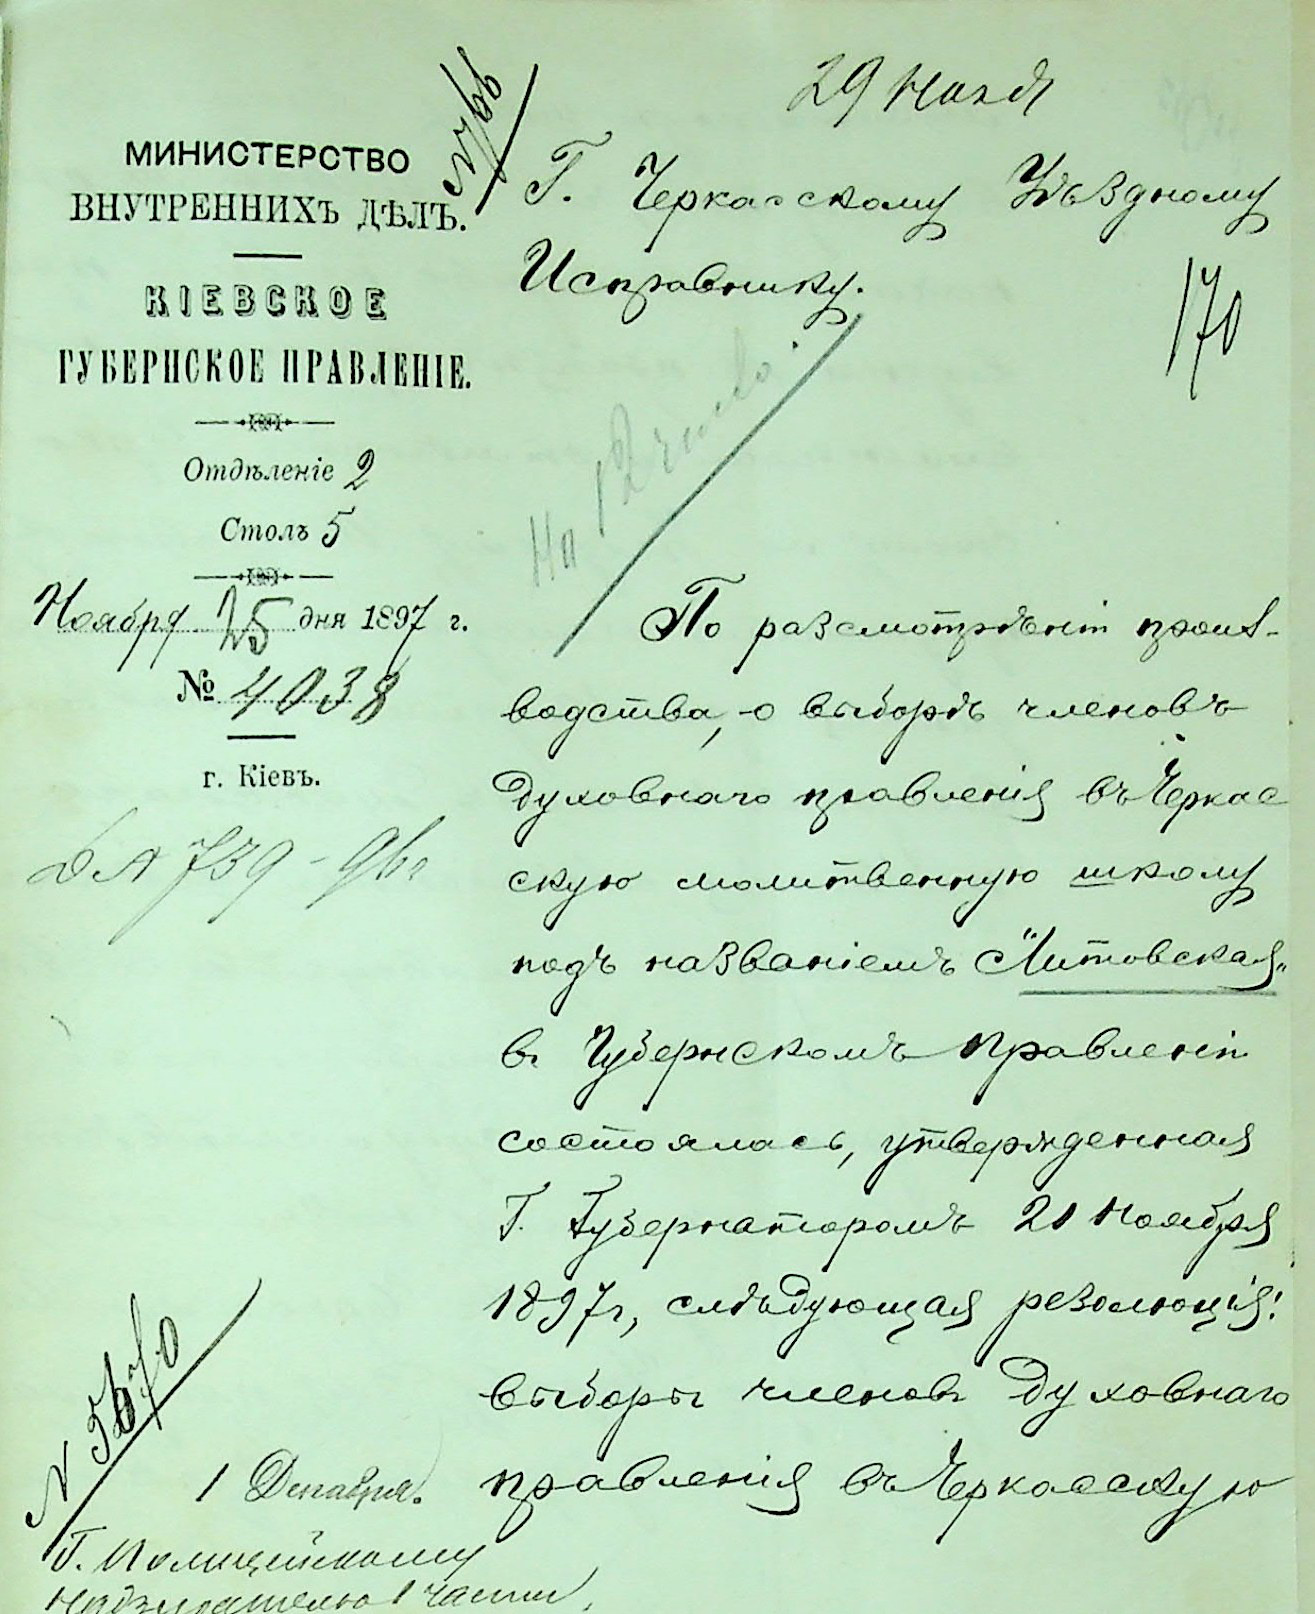 29 Нояб
МИНИСТЕРСТВО
ВНУТРЕННИХЪ ДѢЛЪ.
КІЕВСКОЕ
ГУБЕРНСКОЕ ПРАВЛЕНІЕ.
Отдѣленіе 2
Столъ 5
Ноября 25 дня 1897 г.
№ 4038
г. Кіевъ.
739 - 96 г
Г. Черкасскому Уѣздному
Исправнику.
170
На 12 число.
По разсмотрѣніи произ-
водства, о выборѣ членовъ
духовнаго правленія въ Черкас
скую молитвенную школу
подъ названіемъ "Литовская"
въ Губернскомъ Правленіи
состоялась, утвержденная
Г. Губернаторомъ 21 Ноября
1897 г, слѣдующая резолюція:
выборы членовъ духовнаго
правленія въ Черкасскую
1 Декабря.
Г. Полицейскому
Надзирателю 1 части,